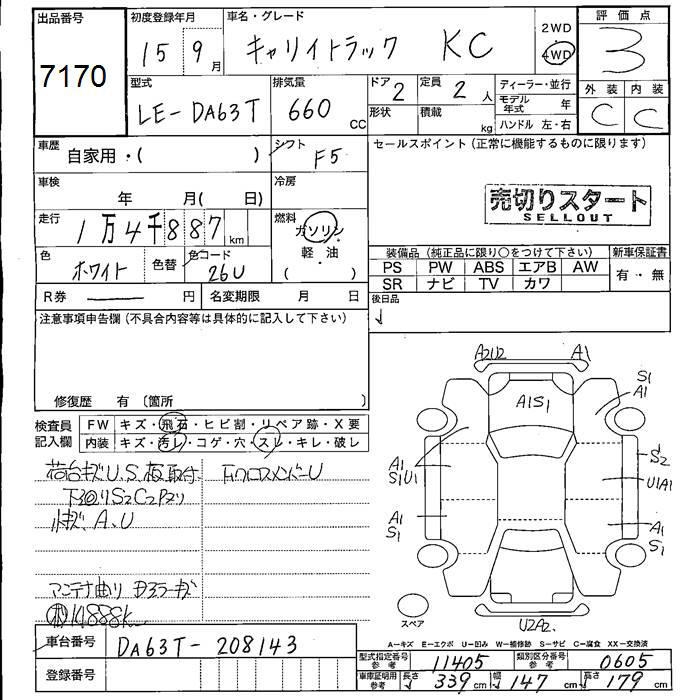 出品番号
7170
初度登録年月
15 9月
車名・グレード
キャリイトラック KC
2WD
4WD
評価点
3
外装 内装
C C
型式
LE-DA63T
排気量
660 CC
ドア
2
定員
2 人
形状
積載
kg
ディーラー・並行
モデル年式 年
ハンドル 左・右
車歴
自家用・( )
シフト
F5
セールスポイント(正常に機能するものに限ります)
売切りスタート
SELLOUT
車検
年 月( 日)
冷房
走行
1万4千887 km
燃料
ガソリン
軽・油
( )
色
ホワイト
色替
色コード
26U
装備品(純正品に限り○をつけて下さい)
新車保証書
PS PW ABS エアB AW
有・無
SR ナビ TV カワ
R券 円
名変期限 月 日
後日品
注意事項申告欄(不具合内容等は具体的に記入して下さい)
修復歴 有〔箇所 〕
検査員
記入欄
FW キズ・飛石・ヒビ割・リペア跡・X要
内装 キズ・汚レ・コゲ・穴・スレ・キレ・破レ
荷台キズU.S.板取付
下廻りS2C2Pヌリ
小キズA.U
FクロスメンバーU
アンテナ曲り
14888k
A2U2
A1
A1S1
S1
A1
A1
S1U1
S2
U1A1
A1
S1
A1
S1
U2A2
スペア
A-キズ E-エクボ U-凹み W-補修跡 S-サビ C-腐食 XX-交換済
車台番号
DA63T-208143
登録番号
型式指定番号 参考
11405
類別区分番号 参考
0605
車庫証明用 参考
長さ 339 cm
幅 147 cm
高さ 179 cm